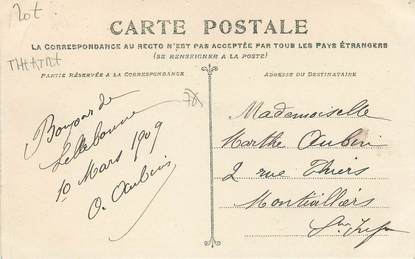 Lot :
CARTE POSTALE
LA CORRESPONDANCE AU RECTO N'EST PAS ACCEPTÉE PAR TOUS LES PAYS ÉTRANGERS
(SE RENSEIGNER A LA POSTE)
PARTIE RÉSERVÉE A LA CORRESPONDANCE
ADRESSE DU DESTINATAIRE
Bonjour de
Lillebonne
10 Mars 1909
O. Aubin
Mademoiselle
Marthe Aubin
2 rue Thiers
Montivilliers
Sne Infre